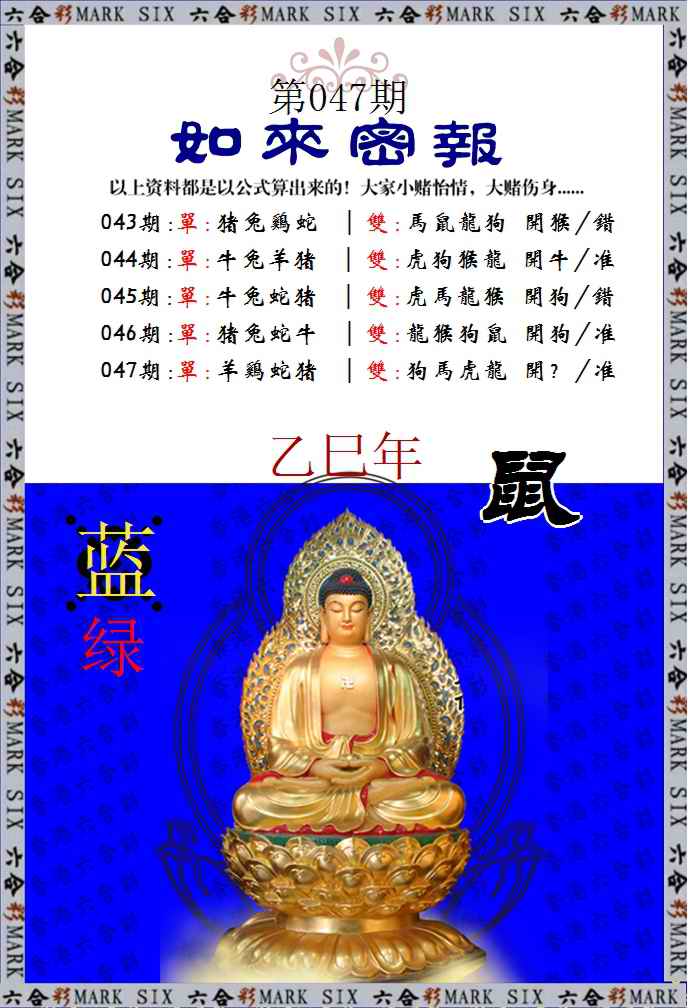 六合彩MARK SIX 六合彩MARK SIX 六合彩MARK SIX 六合彩MARK SIX 六合彩MARK SIX
第047期
如來密報
以上资料都是以公式算出来的！大家小赌怡情，大赌伤身......
043期:單:猪兔鷄蛇 | 雙:馬鼠龍狗 開猴/錯
044期:單:牛兔羊猪 | 雙:虎狗猴龍 開牛/准
045期:單:牛兔蛇猪 | 雙:虎馬龍猴 開狗/錯
046期:單:猪兔蛇牛 | 雙:龍猴狗鼠 開狗/准
047期:單:羊鷄蛇猪 | 雙:狗馬虎龍 開?/准
乙巳年
鼠
蓝
绿
六合彩MARK SIX 六合彩MARK SIX 六合彩MARK SIX 六合彩MARK SIX 六合彩MARK SIX